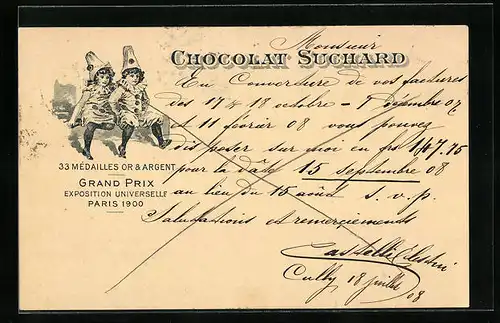 Monsieur
CHOCOLAT SUCHARD
En Couverture de vos factures
des 17 & 18 octobre - 7 décembre 07
et 11 février 08 vous pouvez
disposer sur moi en frs 147.75
pour la date 15 septembre 08
au lieu du 15 août s. v. p.
Salutations et remerciements
Cully 18 juillet
08
33 MÉDAILLES OR & ARGENT
GRAND PRIX
EXPOSITION UNIVERSELLE
PARIS 1900